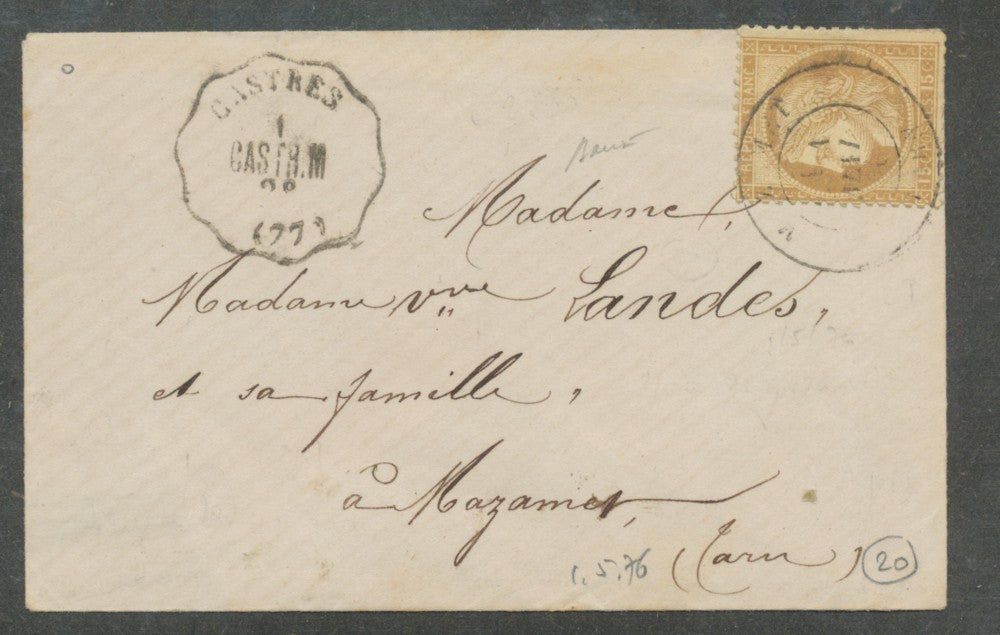 CASTRES
1
CASTR.M
(27)
REPUB FRANC
15 C
15 C
Madame,
Madame Vve Landes,
et sa famille,
à Mazamet,
(Tarn)
1.5.76
20